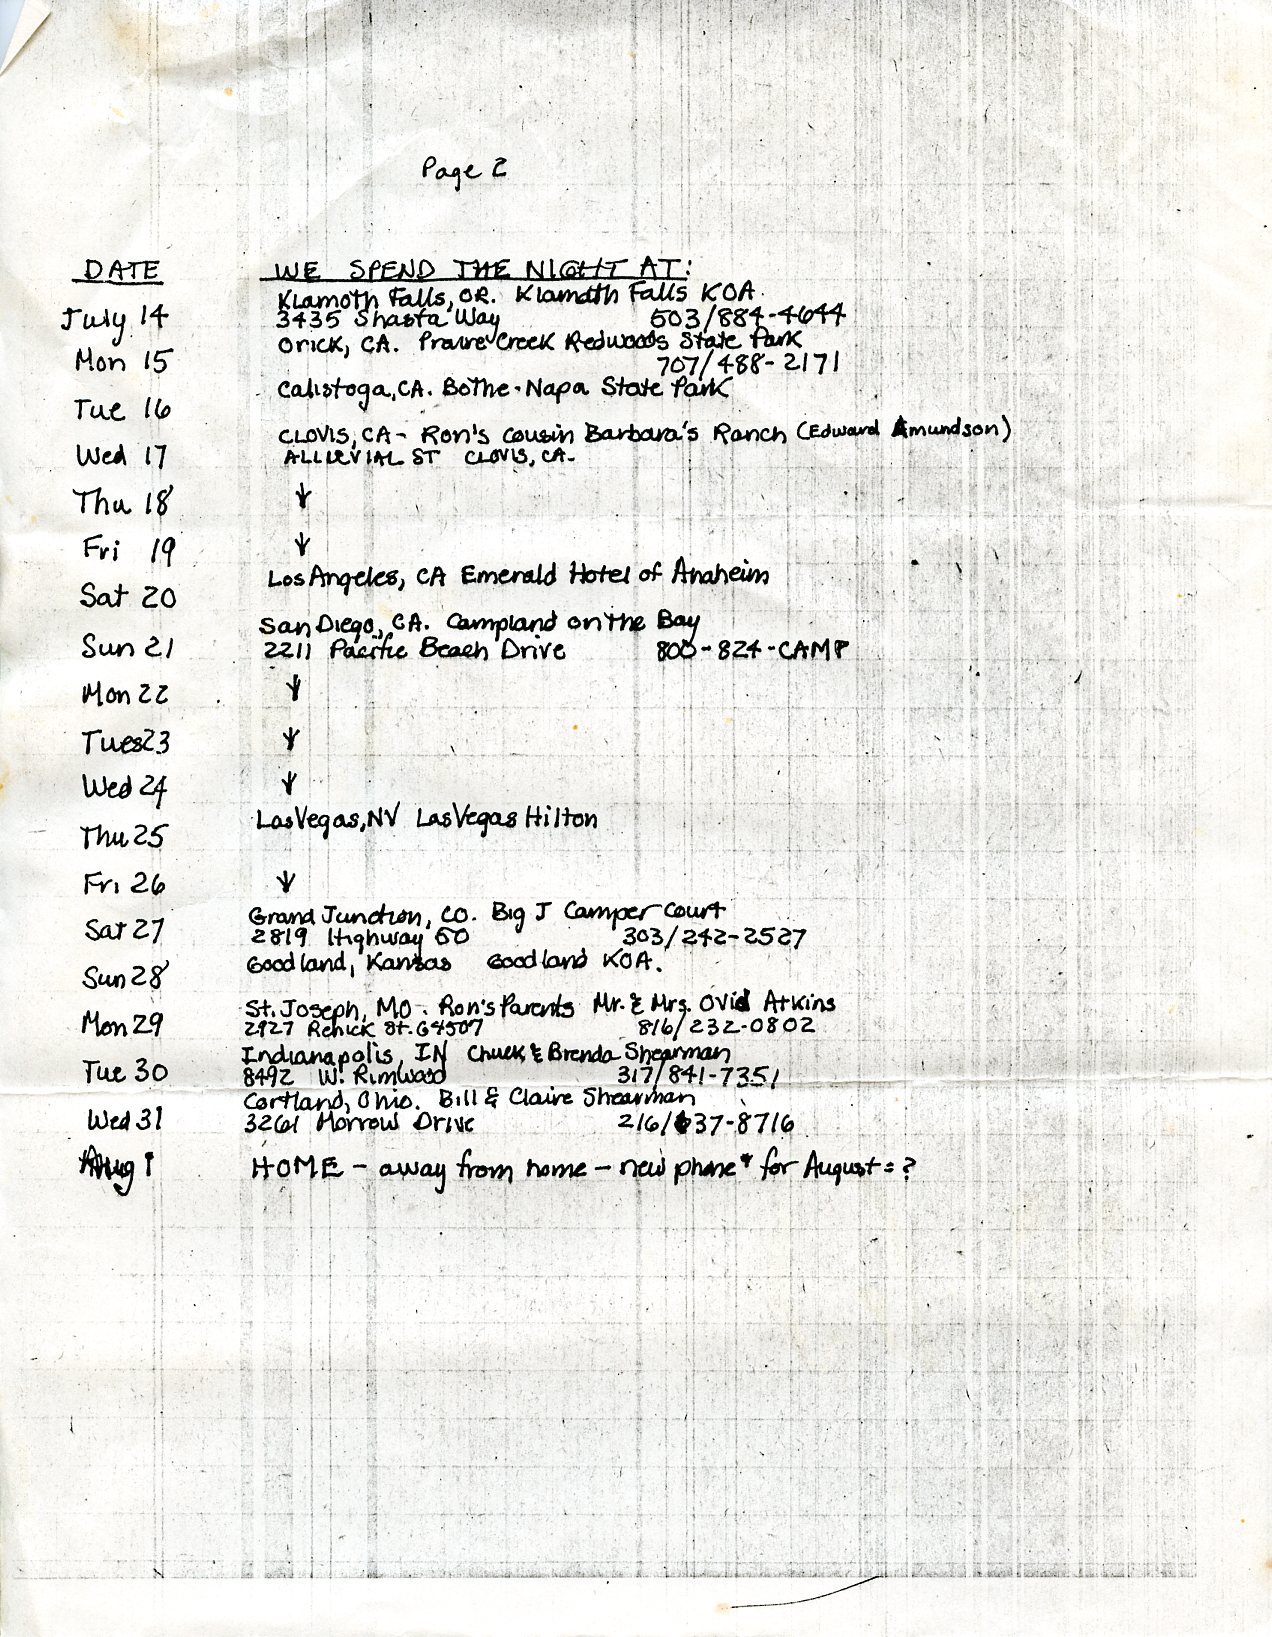 Page 2
DATE WE SPEND THE NIGHT AT:
Klamoth Falls, OR. Klamath Falls KOA.
July 14 3435 Shasta Way 503/884-4644
Orick, CA. Prairie Creek Redwoods State Park
Mon 15 707/488-2171
Calistoga, CA. Bothe-Napa State Park
Tue 16
CLOVIS, CA - Ron's Cousin Barbara's Ranch (Edward Amundson)
Wed 17 ALLUVIAL ST CLOVIS, CA.
Thu 18 ↓
Fri 19 ↓
Los Angeles, CA Emerald Hotel of Anaheim
Sat 20
San Diego, CA. Campland on the Bay
Sun 21 2211 Pacific Beach Drive 800-824-CAMP
Mon 22 ↓
Tues 23 ↓
Wed 24 ↓
Las Vegas, NV Las Vegas Hilton
Thu 25
Fri 26 ↓
Grand Junction, CO. Big J Camper Court
Sat 27 2819 Highway 50 303/242-2527
Goodland, Kansas Goodland KOA.
Sun 28
St. Joseph, MO. Ron's Parents Mr. & Mrs. Ovid Atkins
Mon 29 2927 Renick St. 64507 816/232-0802
Indianapolis, IN Chuck & Brenda Shearman
Tue 30 8492 W. Rimwood 317/841-7351
Cortland, Ohio. Bill & Claire Shearman
Wed 31 3261 Morrow Drive 216/637-8716
Aug 1 HOME - away from home - new phone # for August = ?